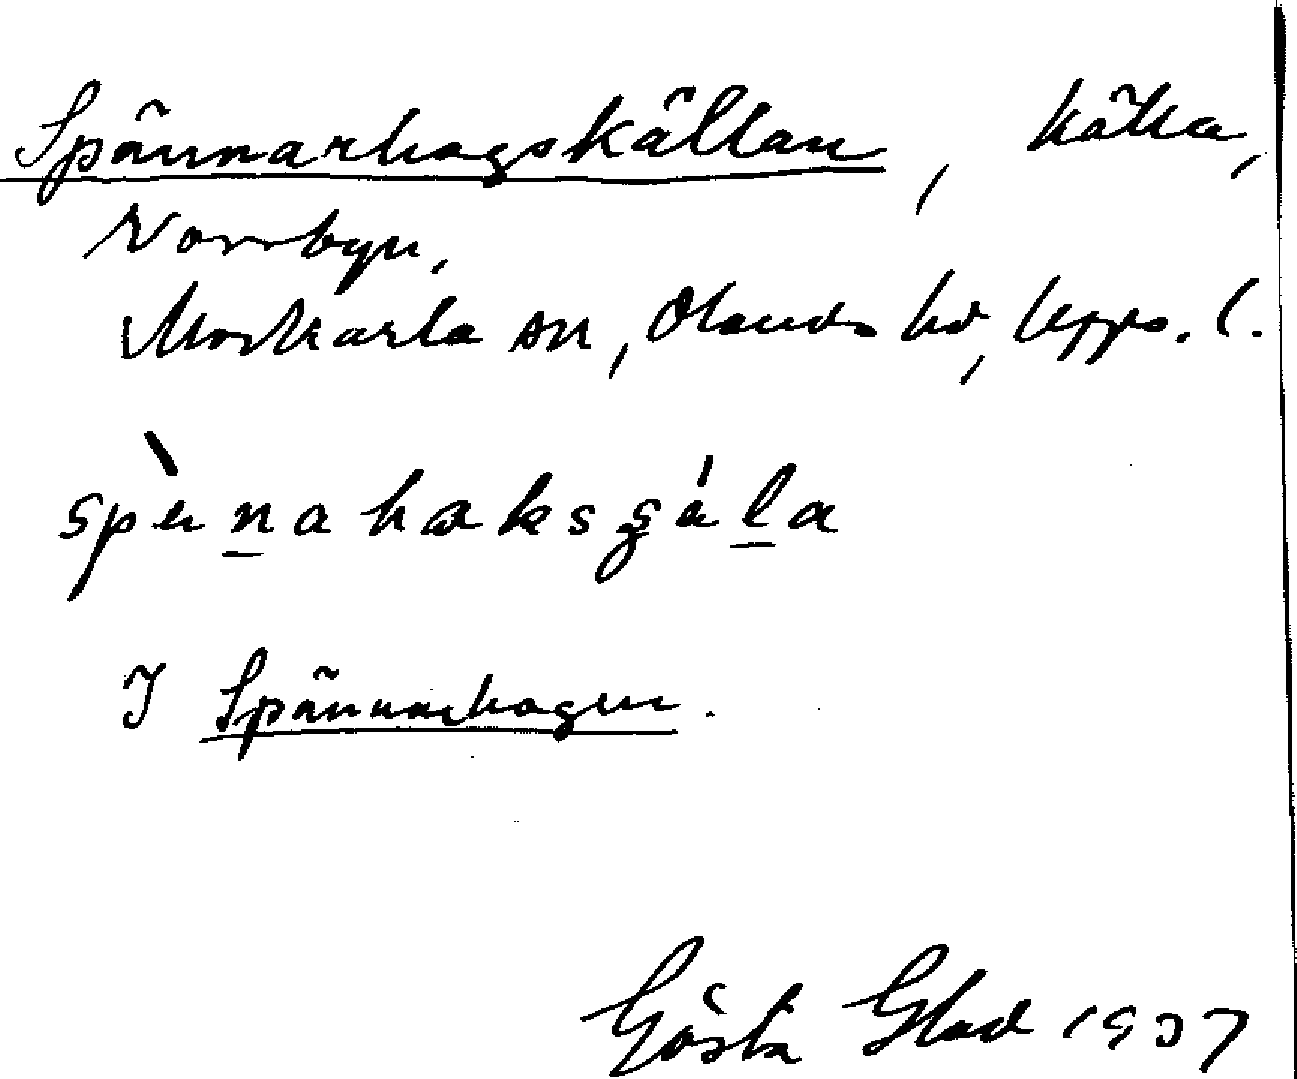 Spännarhagskällan, källa,
Norrbyn,
Morkarla sn, Olands hd, Upps. l.
I Spännarhagen.
Gösta Glad 1937